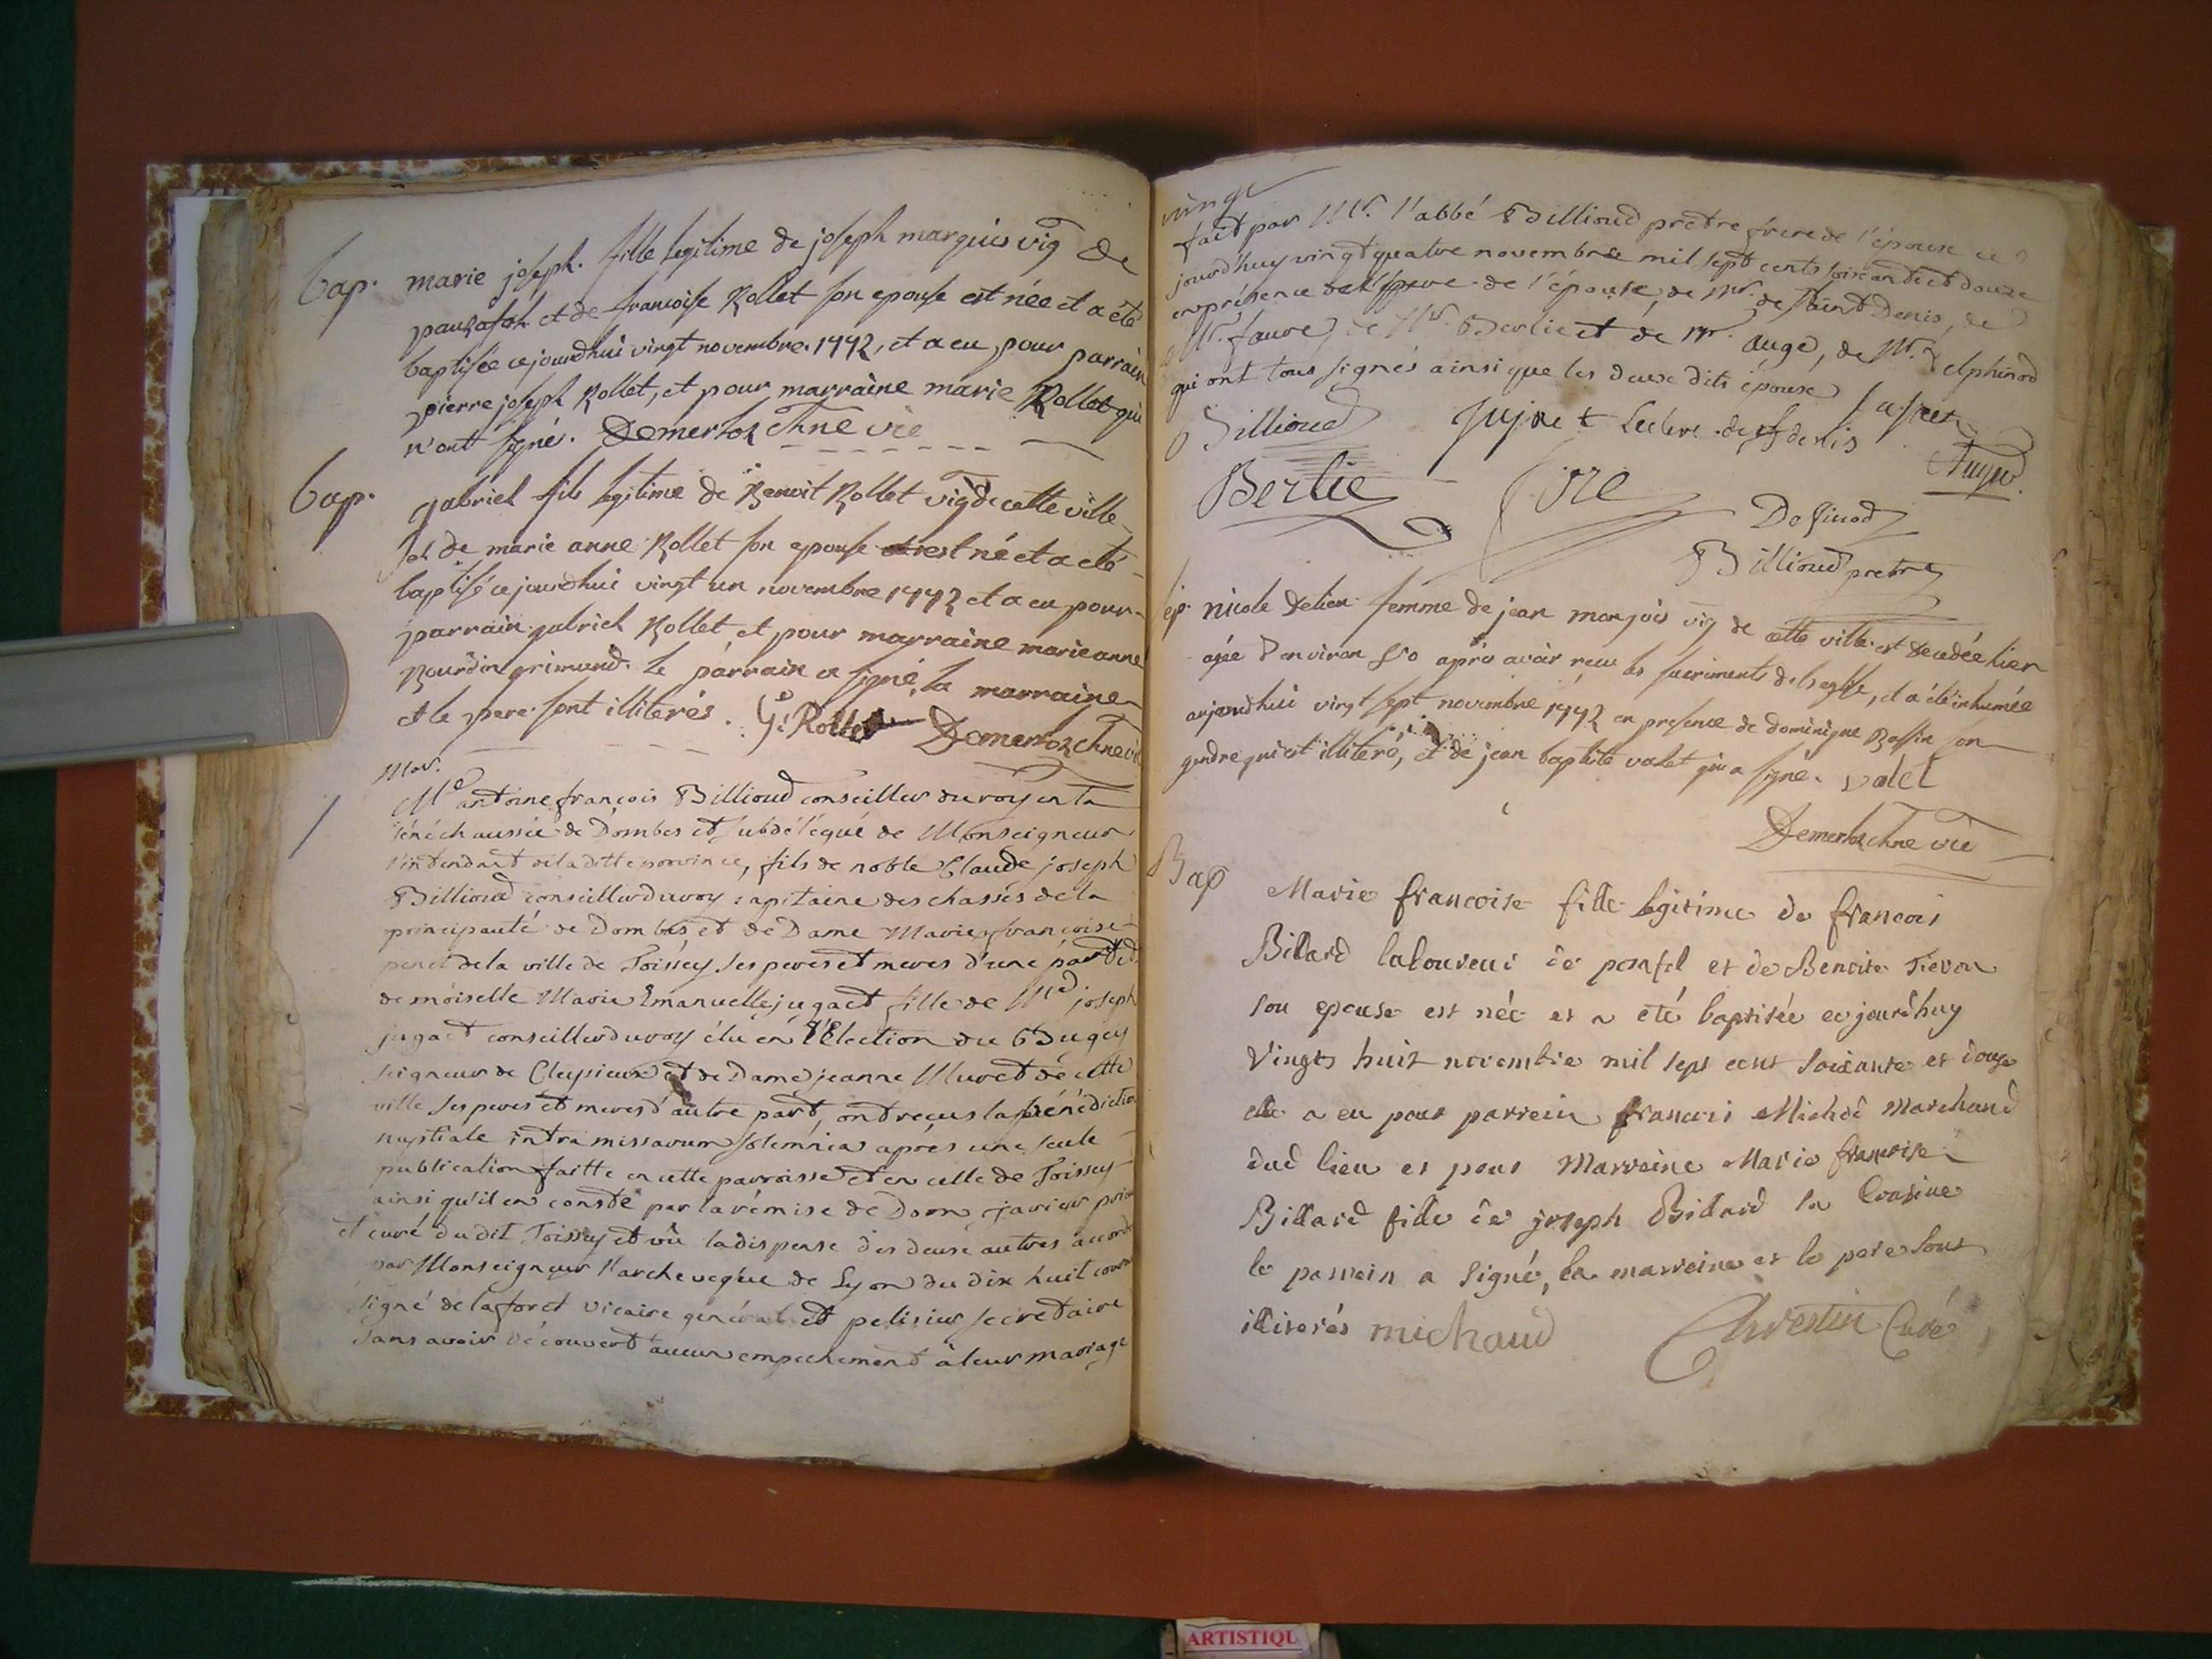 bap. marie joseph. fille legitime de joseph marquis vig de
et de francoise Rollet son epouse est née et a été
baptisée cejourdhui vingt novembre. 1772, et a eu pour parrain
pierre joseph Rollet, et pour marraine marie Rollet qui
n'ont signé. Demerloz Chne vic
bap. gabriel fils legitime de Benoit Rollet vig de cette ville
et de marie anne Rollet son epouse est né et a eté
baptisé cejourdhui vingt un novembre 1772 et a eu pour
parrain gabriel Rollet, et pour marraine marie anne
Bourdin grimaud. le parrain a signé, la marraine
et le pere sont illiterés. G: Rollet Demerloz Chne vic
Mar.
Me antoine françois Billioud conseiller du roy en la
sénéchaussée de Dombes et subdélégué de Monseigneur
l'intendant de la ditte province, fils de noble Claude joseph
Billioud conseiller du roy capitaine des chasses de la
principauté de Dombes, et de Dame Marie françoise
de la ville de Toissey ses peres et meres d'une part et
demoiselle Marie Emanuelle jugaet fille de Me joseph
jugaet conseiller du roy élu en l'Election du Bugey
seigneur de et de Dame jeanne Muret de cette
ville ses peres et meres d'autre part, ont reçus la bénédiction
nuptiale intra missarum solemnia après une seule
publication faitte en cette parroisse et en celle de Toissey
ainsi qu'il en conste par la rémise de Dom
et curé du dit Toissey et vû la dispense des deux autres accordé
par Monseigneur l'archeveque de Lyon du dix huit courant
signé de la foret vicaire général et pelisier secretaire
sans avoir découvert aucun empechement à leur mariage
fait par Mr. l'abbé Billioud prêtre frere de l'époux ce
jourd'huy vingt quatre novembre mil sept cents soixante et douze
en présence de de l'épouse, de Mr. de Saint Denis, de
Mr. faure, de Mr. Berlie et de Mr. augé, de Mr. Delphinod
qui ont tous signés ainsi que les deux dits époux
Billioud Leclerc de St denis
Berlie
Billioud pretre
ép. nicole femme de jean vig de cette ville est decedée hier
agée d'environ apres avoir reçu les sacrements de l'eglise, et a été inhumée
aujourdhui vingt sept novembre 1772 en presence de dominique son
gendre qui est illiteré, et de jean baptiste valet qui a signé. valet
Demerloz Chne vic
Bap Marie francoise fille legitime de francois
Billard laboureur de et de Benoite
son epouse est née et a été baptisée cejourd'huy
Vingts huit novembre mil sept cent soixante et douze
elle a eu pour parrein francois Marchand
dud lieu et pour Marreine Marie francoise
Billard fille de joseph Billard sa Cousine
le parrein a signé, la marreine et le pere sont
illiterés michaud Curé
ARTISTIQU